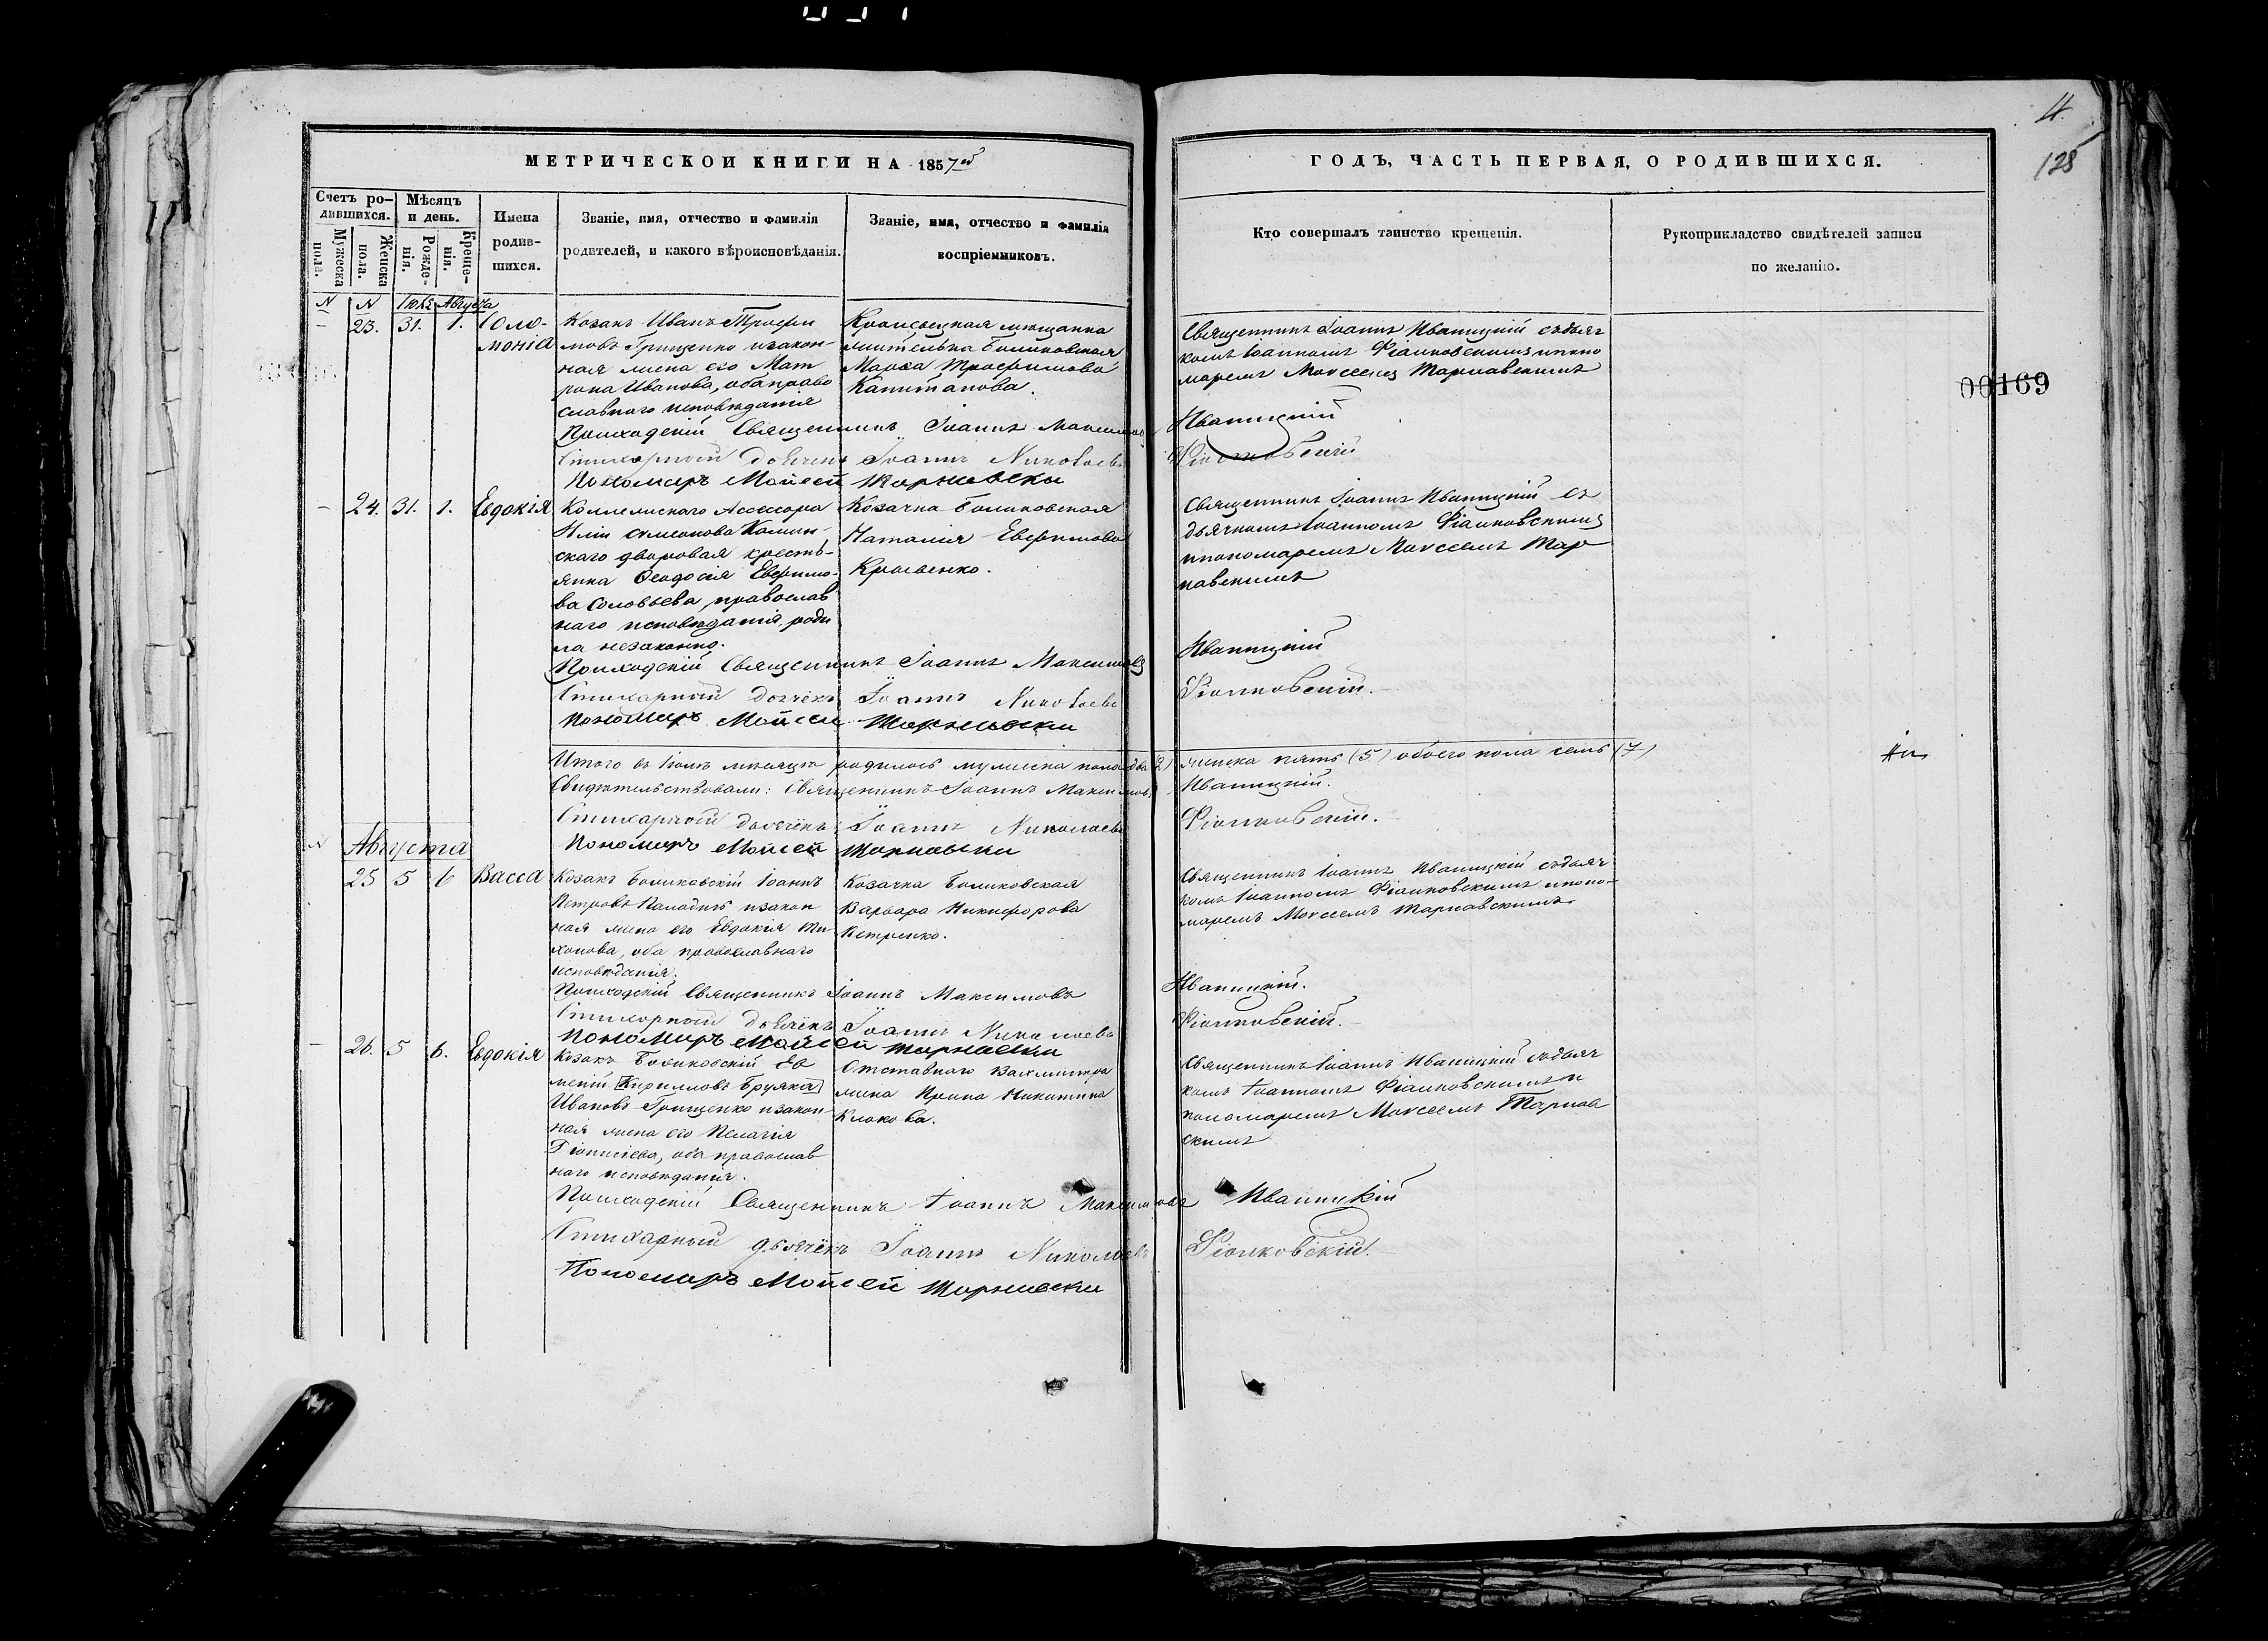 4.
128
МЕТРИЧЕСКОЙ КНИГИ НА 1857ой
ГОДЪ, ЧАСТЬ ПЕРВАЯ, О РОДИВШИХСЯ.
Счетъ ро-
дившихся.
Мужеска
пола.
Женска
пола.
Мѣсяцъ
и день.
Рожде-
нія.
Креще-
нія.
Имена
родив-
шихся.
Званіе, имя, отчество и фамилія
родителей, и какого вѣроисповѣданія.
Званіе, имя, отчество и фамилія
воспріемниковъ.
Кто совершалъ таинство крещенія.
Рукоприкладство свидѣтелей записи
по желанію.
00169
N N Іюля Августа
- 23. 31. 1. Соло-
монія
Козакъ Иванъ Трофи
мовъ Грищенко изакон-
ная жена его Мат
рона Иванова, оба право
славнаго исповѣданія
мѣщанка
жителька Болиховская
Трофимова
Капитанова.
Священникъ Іоаннъ Иваницкій съдьяч
комъ Іоанномъ Фіалковскимъ ипоно
маремъ Моѵсеемъ Тарнавскимъ
Приходскій Священникъ Іоаннъ Максимовъ Иваницкій
Стихарный дьячекъ Іоаннъ Николаевъ Фіалковскій
Пономаръ Мойсей Тарнавски
- 24. 31. 1. Евдокія
Коллежскаго Ассесора
скаго дворовая кресть-
янка Феодосія Евфимо-
ва Соловьева, православ
наго исповѣданія, роди
ла незаконно.
Козачка Болиховская
Наталія Евфимова
Священникъ Іоаннъ Иваницкій съ
дьячкомъ Іоанномъ Фіалковскимъ
ипономаремъ Моѵсеемъ Тар
навскимъ
Приходскій Священникъ Іоаннъ Максимовъ Иваницкій
Стихарный дьячекъ Іоаннъ Николаевъ Фіалковскій.
Пономаръ Мойсей Тарнавски
Итого въ Іюлѣ мѣсяцѣ родилось мужеска пола два (2) женска пять (5) обоего пола семь (7)
Свидѣтельствовали: Священникъ Іоаннъ Максимовъ Иваницкій.
Стихарный дьячекъ Іоаннъ Николаевъ Фіалковскій.
Пономаръ Мойсей Тарнавски
N Августа
25 5 6 Васса
Козакъ Болиховскій Іоаннъ
Петровъ изакон
ная жена его Евдокія Ти-
хонова, оба православнаго
исповѣданія.
Козачка Болиховская
Варвара Никифорова
Петренко.
Священникъ Іоаннъ Иваницкій съдьяч
комъ Іоанномъ Фіалковскимъ ипоно-
маремъ Моѵсеемъ Тарнавскимъ.
Приходскій Священникъ Іоаннъ Максимовъ Иваницкій.
Стихарный дьячекъ Іоаннъ Николаевъ Фіалковскій.
Пономаръ Мойсей Тарнавски
- 26. 5 6. Евдокія
Козакъ Болиховскій Ев
меній [Кирилловъ Бруяка]
Ивановъ Грищенко изакон-
ная жена его Пелагія
Діонисіева, оба православ
наго исповѣданія.
Отставнаго Вахмистра
жена Ирина Никитина
Клокова.
Священникъ Іоаннъ Иваницкій съдьяч
комъ Іоанномъ Фіалковскимъ и
пономаремъ Моѵсеемъ Тарнав
скимъ
Приходскій Священникъ Іоаннъ Максимовъ Иваницкій
Стихарный дьячекъ Іоаннъ Николаевъ Фіалковскій.
Пономаръ Мойсей Тарнавски